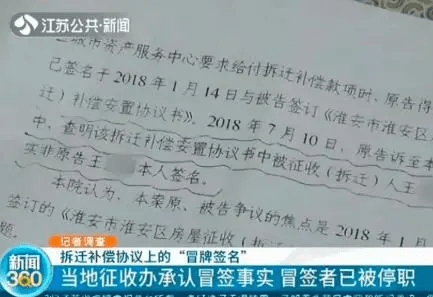 江苏公共·新闻
城市资产服务中心要求给付拆迁补偿款项时，原告得
已签名于2018年1月14日与被告签订《淮安市淮安区
迁）补偿安置协议书》。2018年7月10日，原告诉至本
中，查明该拆迁补偿安置协议书中被征收（拆迁）人王
实非原告王 本人签名。
本院认为，本案原、被告争议的焦点是2018年1
签订的《淮安市淮安区房屋征收（
题。
记者调查
拆迁补偿协议上的“冒牌签名”
新闻360
当地征收办承认冒签事实 冒签者已被停职